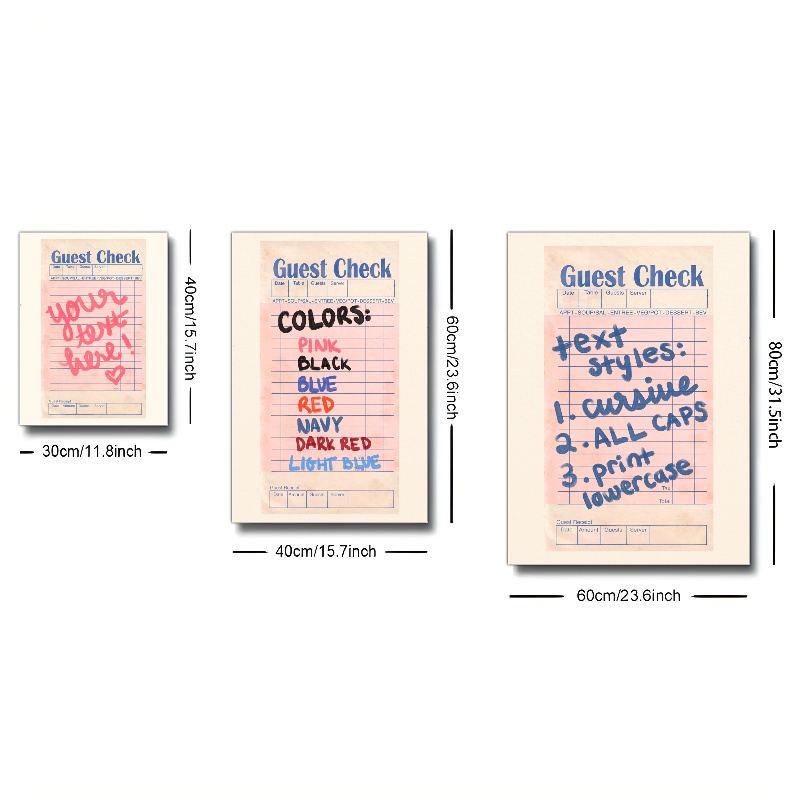 Guest Check
Date Table Guests Server
APPT-SOUP/SAL-ENTREE-VEG/POT-DESSERT-BEV
your
text
here!
Guest Receipt
Date Amount Guests Server
40cm/15.7inch
30cm/11.8inch
Guest Check
Date Table Guests Server
APPT-SOUP/SAL-ENTREE-VEG/POT-DESSERT-BEV
COLORS:
PINK
BLACK
BLUE
RED
NAVY
DARK RED
LIGHT BLUE
Guest Receipt
Date Amount Guests Server
60cm/23.6inch
40cm/15.7inch
Guest Check
Date Table Guests Server
APPT-SOUP/SAL-ENTREE-VEG/POT-DESSERT-BEV
text
styles:
1. cursive
2. ALL CAPS
3. print
lowercase
Tax
Total
Guest Receipt
Date Amount Guests Server
80cm/31.5inch
60cm/23.6inch